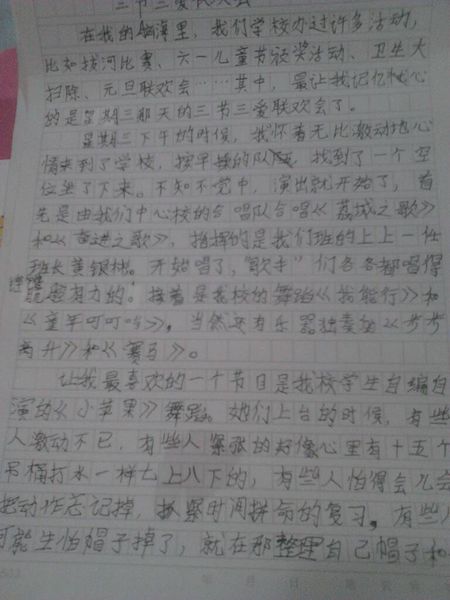 三节三爱联欢会
在我的脑海里，我们学校办过许多活动，
比如拔河比赛、六一儿童节颁奖活动、卫生大
扫除、元旦联欢会……其中，最让我记忆忧心
的是星期三那天的三节三爱联欢会了。
星期三下午的时候，我怀着无比激动地心
情来到了学校，按早操的队形，找到了一个空
位坐了下来。不知不觉中，演出就开始了，首
先是由我们中心校的合唱队合唱《荔城之歌》
和《奋进之歌》，指挥的是我们班的上上一任
班长黄银林。开始唱了，“歌手”们各各都唱得
有力的。接着是我校的舞蹈《我能行》和
《童年叮叮当》。当然还有乐器独奏《步步
高升》和《赛马》。
让我最喜欢的一个节目是我校学生自编自
演的《小苹果》舞蹈。她们上台的时候，有些
人激动不已，有些人紧张的好像心里有十五个
吊桶打水一样七上八下的，有些人怕得会儿会
把动作忘记掉，抓紧时间拼命的复习。有些人
可能生怕帽子掉了，就在那整理自己帽子和